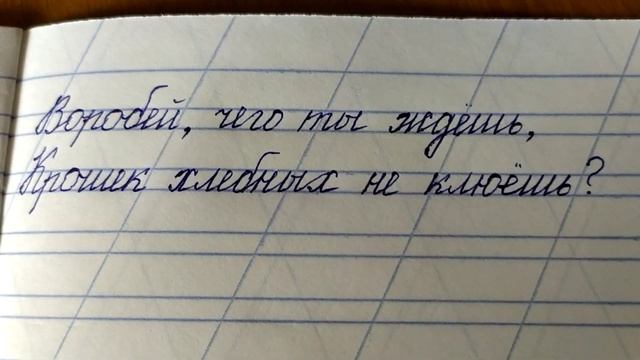 Воробей, чего ты ждёшь,
Крошек хлебных не клюёшь?